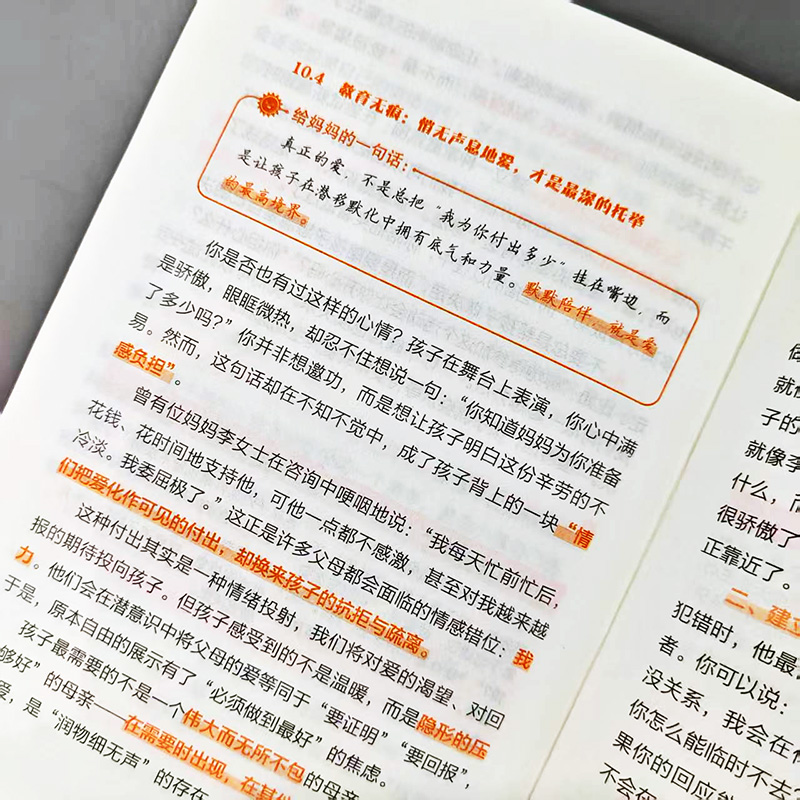 10.4 教育无痕：悄无声息地爱，才是最深的托举
给妈妈的一句话：
真正的爱，不是总把“我为你付出多少”挂在嘴边，而
是让孩子在潜移默化中拥有底气和力量。默默陪伴，就是爱
的最高境界。
你是否也有过这样的心情？孩子在舞台上表演，你心中满
是骄傲，眼眶微热，却忍不住想说一句：“你知道妈妈为你准备
了多少吗？”你并非想邀功，而是想让孩子明白这份辛劳的不
易。然而，这句话却在不知不觉中，成了孩子背上的一块“情
感负担”。
曾有位妈妈李女士在咨询中哽咽地说：“我每天忙前忙后，
花钱、花时间地支持他，可他一点都不感激，甚至对我越来越
冷淡。我委屈极了。”这正是许多父母都会面临的情感错位：我
们把爱化作可见的付出，却换来孩子的抗拒与疏离。
这种付出其实是一种情绪投射，我们将对爱的渴望、对回
报的期待投向孩子。但孩子感受到的不是温暖，而是隐形的压
力。他们会在潜意识中将父母的爱等同于“要证明”“要回报”，
于是，原本自由的展示有了“必须做到最好”的焦虑。
孩子最需要的不是一个伟大而无所不包的母亲
够好”的母亲——在需要时出现，在其
爱，是“润物细无声”的存在
就
子的
就像李
什么，而
很骄傲了
正靠近了。
二、建立
犯错时，他最
者。你可以说：
没关系，我会在
你怎么能临时不去
果你的回应能
不会在